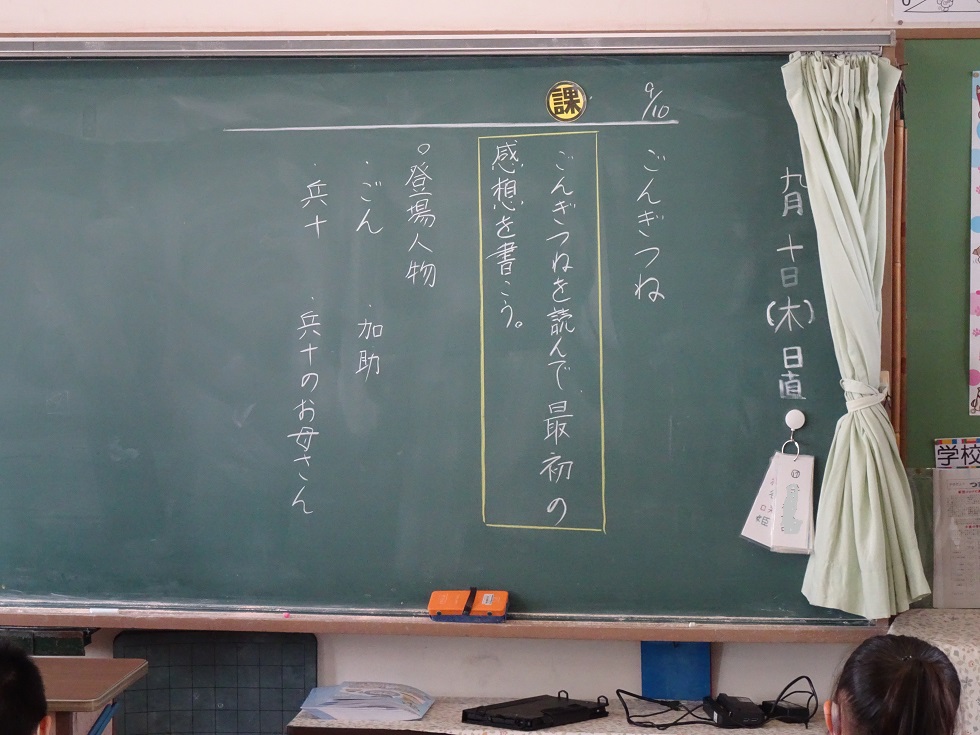 九月十日(木)日直
9/10
ごんぎつね
課
ごんぎつねを読んで、最初の
感想を書こう。
○登場人物
・ごん 加助
・兵十 ・兵十のお母さん
学校